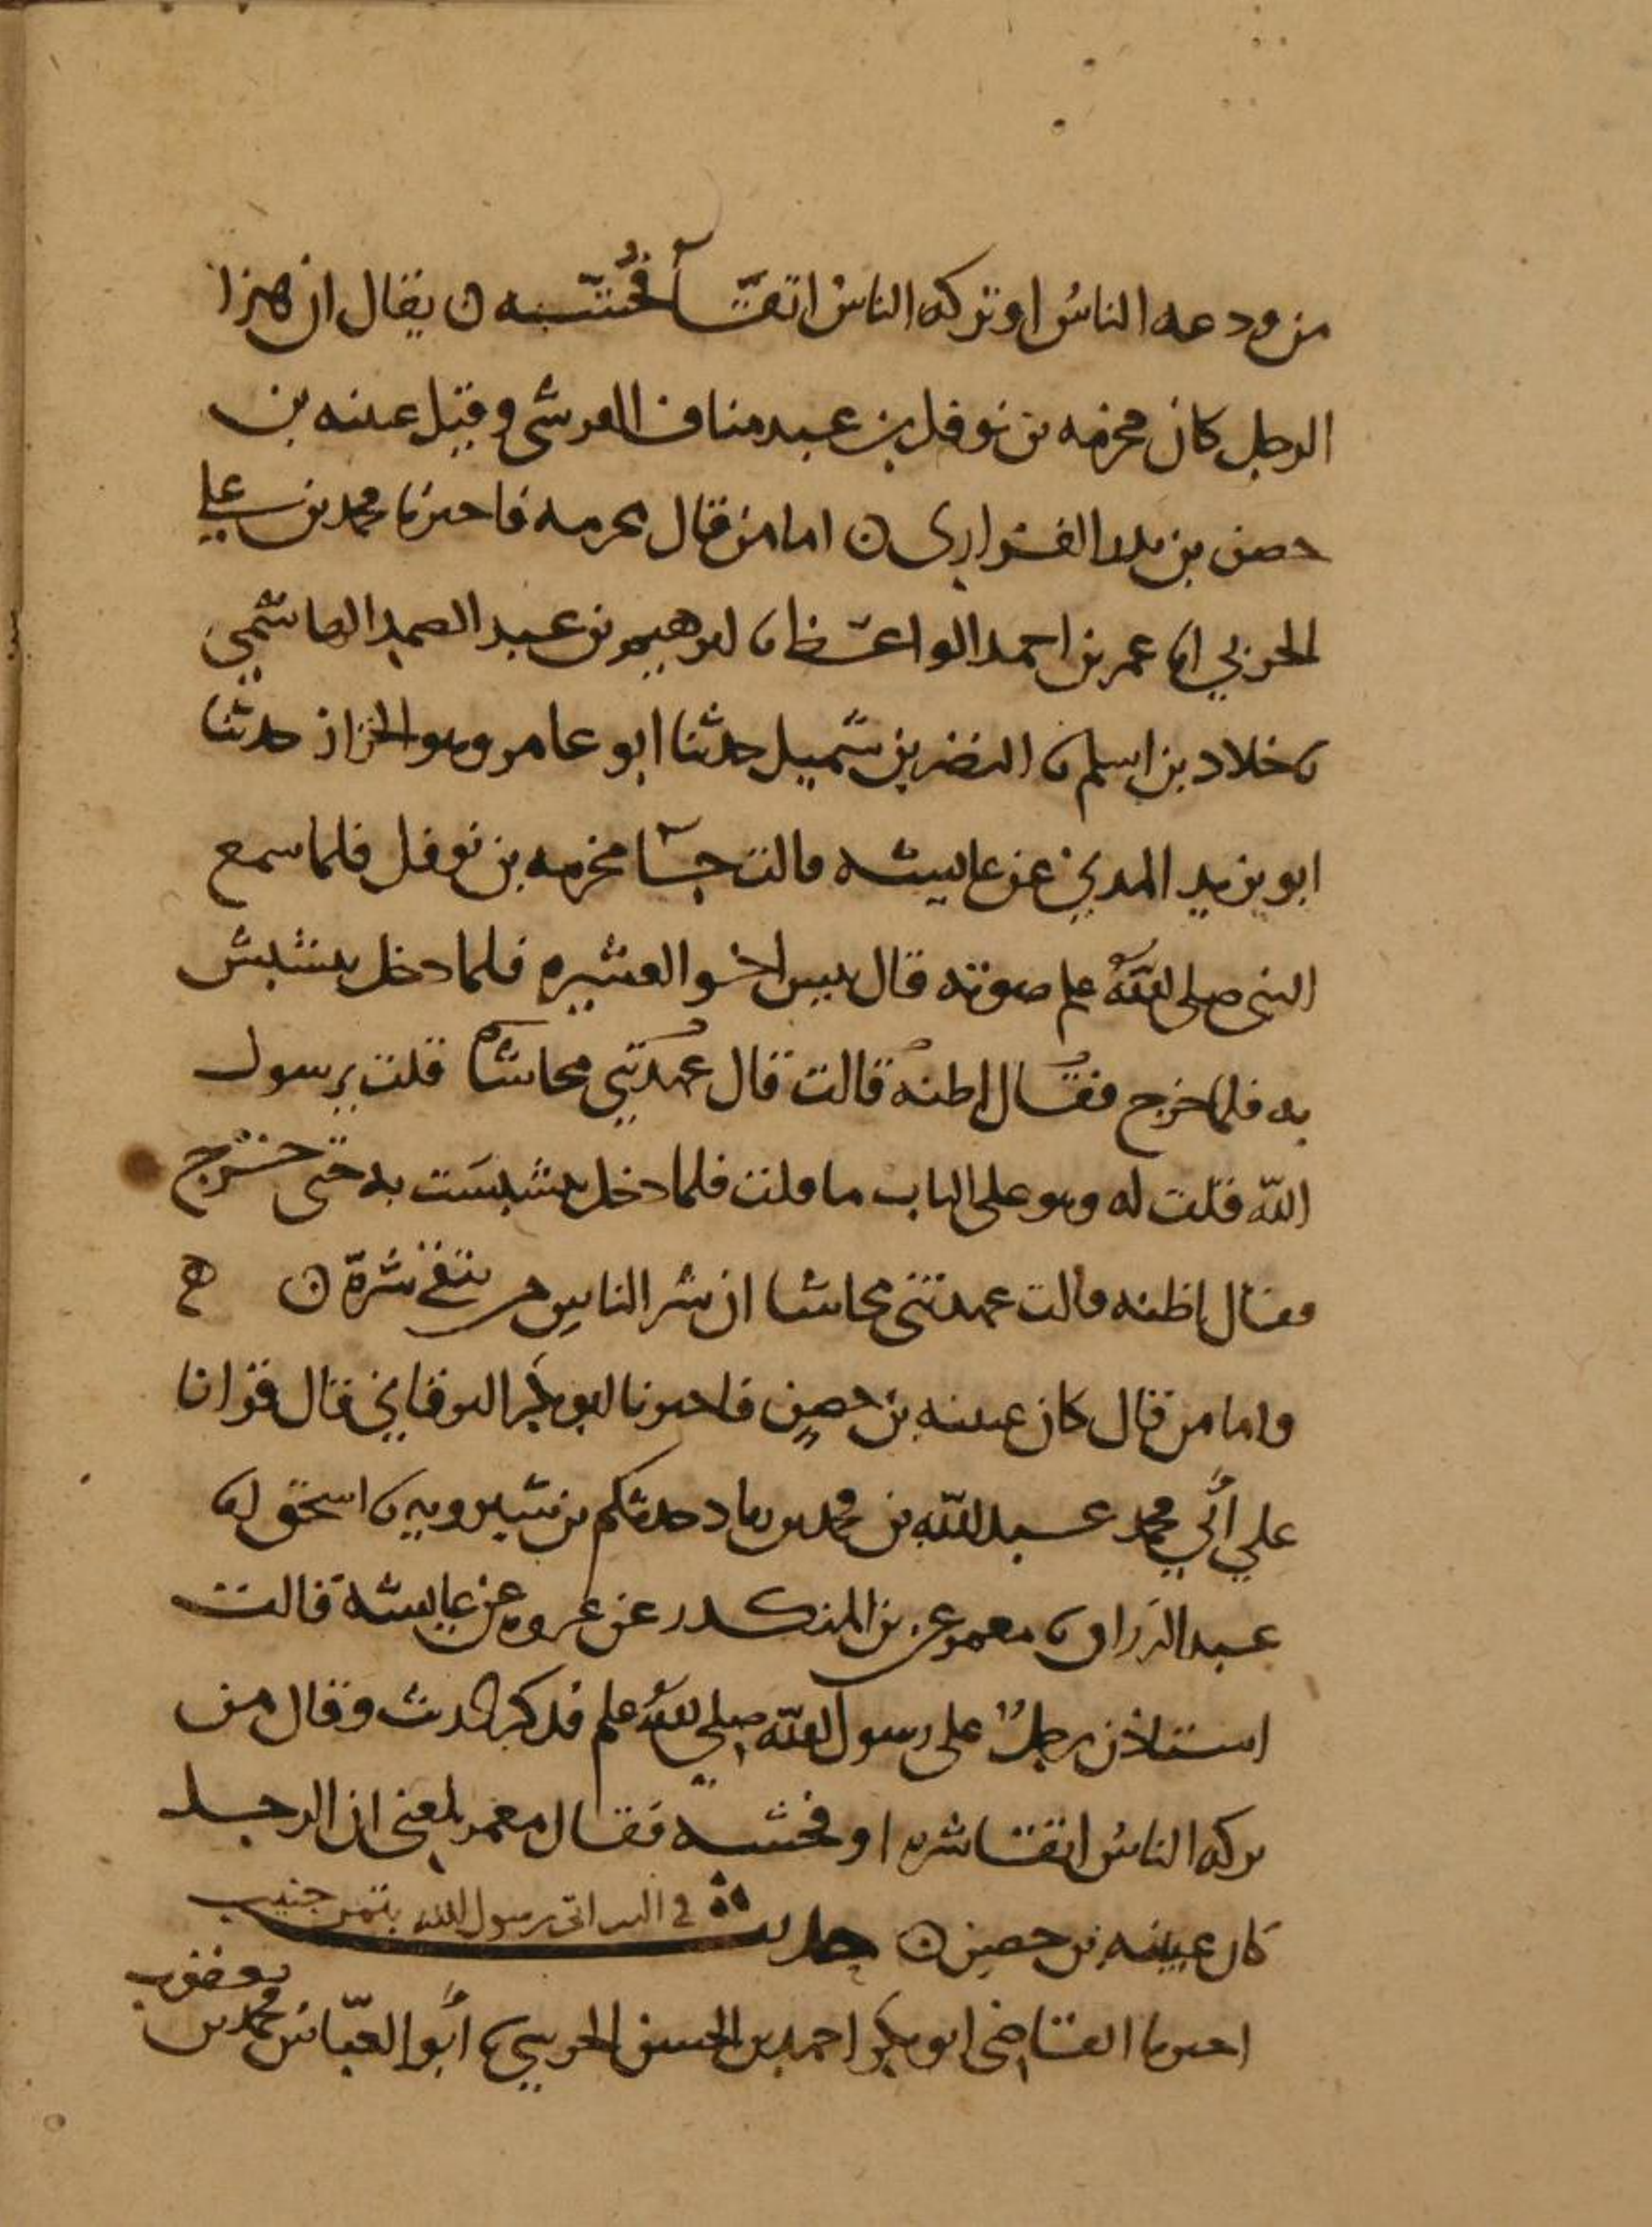 من ودعه الناس او تركه الناس اتقآ فُحشه ن يقال ان هذا
الرجل كان مخرمه بن نوفل بن عبد مناف القرشي وقيل عيينه بن
حصن بن بدر الفزاري ن اما من قال مخرمه فاخبرنا محمد بن علي
الحربي انا عمر بن احمد الواعظ نا ابرهيم بن عبد الصمد الهاشمي
نا خلاد بن اسلم نا النضر بن شميل حدثنا ابو عامر وهو الخزاز حدثنا
ابو يزيد المديني عن عايشه قالت جآ مخرمه بن نوفل فلما سمع
النبي صلى الله علم صوته قال بيس اخو العشيره فلما دخل بشبش
به فلما خرج فقال اظنه قالت قال عهدتني محاشا قلت يرسول
الله قلت له وهو على الباب ما قلت فلما دخل بشبشت به حتى خرج
فقال اظنه قالت عهدتني محاشا ان شر الناس من يتقى شره ن ه
واما من قال كان عيينه بن حصن فاخبرنا ابو بكر البرقاني قال قرانا
علي أبي محمد عبد الله بن محمد بن زياد حدثكم بن شيرويه نا اسحق انا
عبد الرزاق نا معمر عن بن المنكدر عن عروه عن عايشة قالت
استاذن رجلٌ على رسول الله صلي الله علم فذكر الحديث وقال من
تركه الناس اتقا شره او فحشه فقال معمر بلغني ان الرجل
كان عيينه بن حصن ن حديث في الذي اتى رسول الله بتمر جنيب
اخبرنا القاضي ابو بكر احمد بن الحسن الحرشي نا أبو العبّاس محمد بن يعقوب